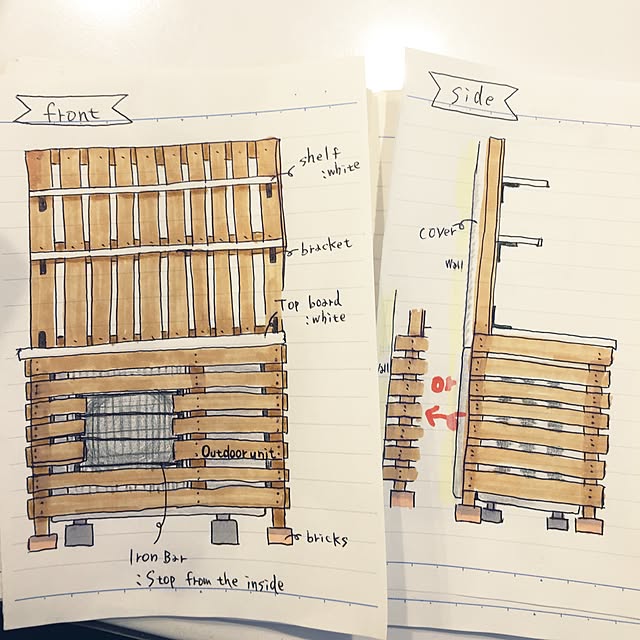 front
shelf
:white
bracket
Top board
:white
Outdoor unit
bricks
Iron Bar
:Stop from the inside
side
cover
Wall
all
or